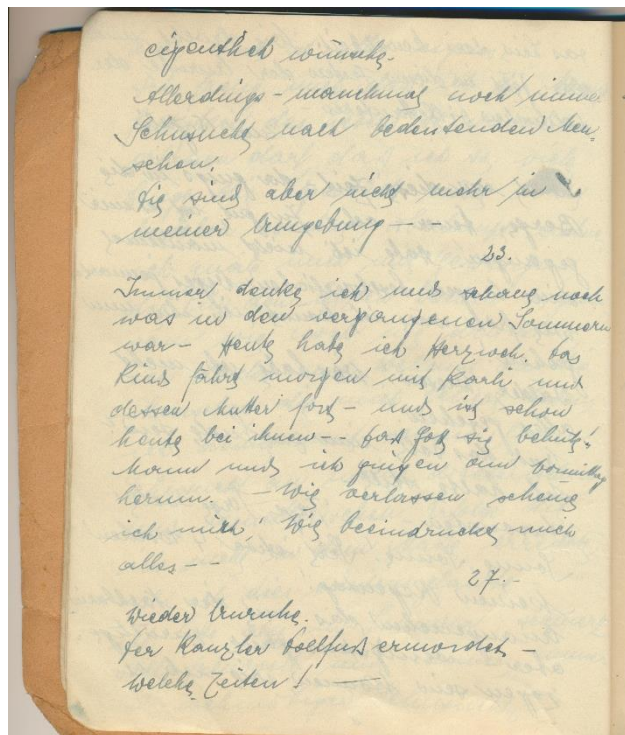 eigentlich wünsche.
Allerdings - manchmal noch immer
Sehnsucht nach bedeutenden Men-
schen.
Sie sind aber nicht mehr in
meiner Umgebung - -
23.
Immer denke ich und schaue nach
was in den vergangenen Sommern
war - Heute habe ich Herzweh. Das
Kind fährt morgen mit Karli und
dessen Mutter fort - und ist schon
heute bei ihnen - - Gott sie behüte!
Mann und ich gingen am Vormittag
herum. - Wie verlassen scheine
ich mir! Wie beeindruckt mich
alles - -
27. -
Wieder Unruhe.
Der Kanzler Dollfuß ermordet -
welche Zeiten! -